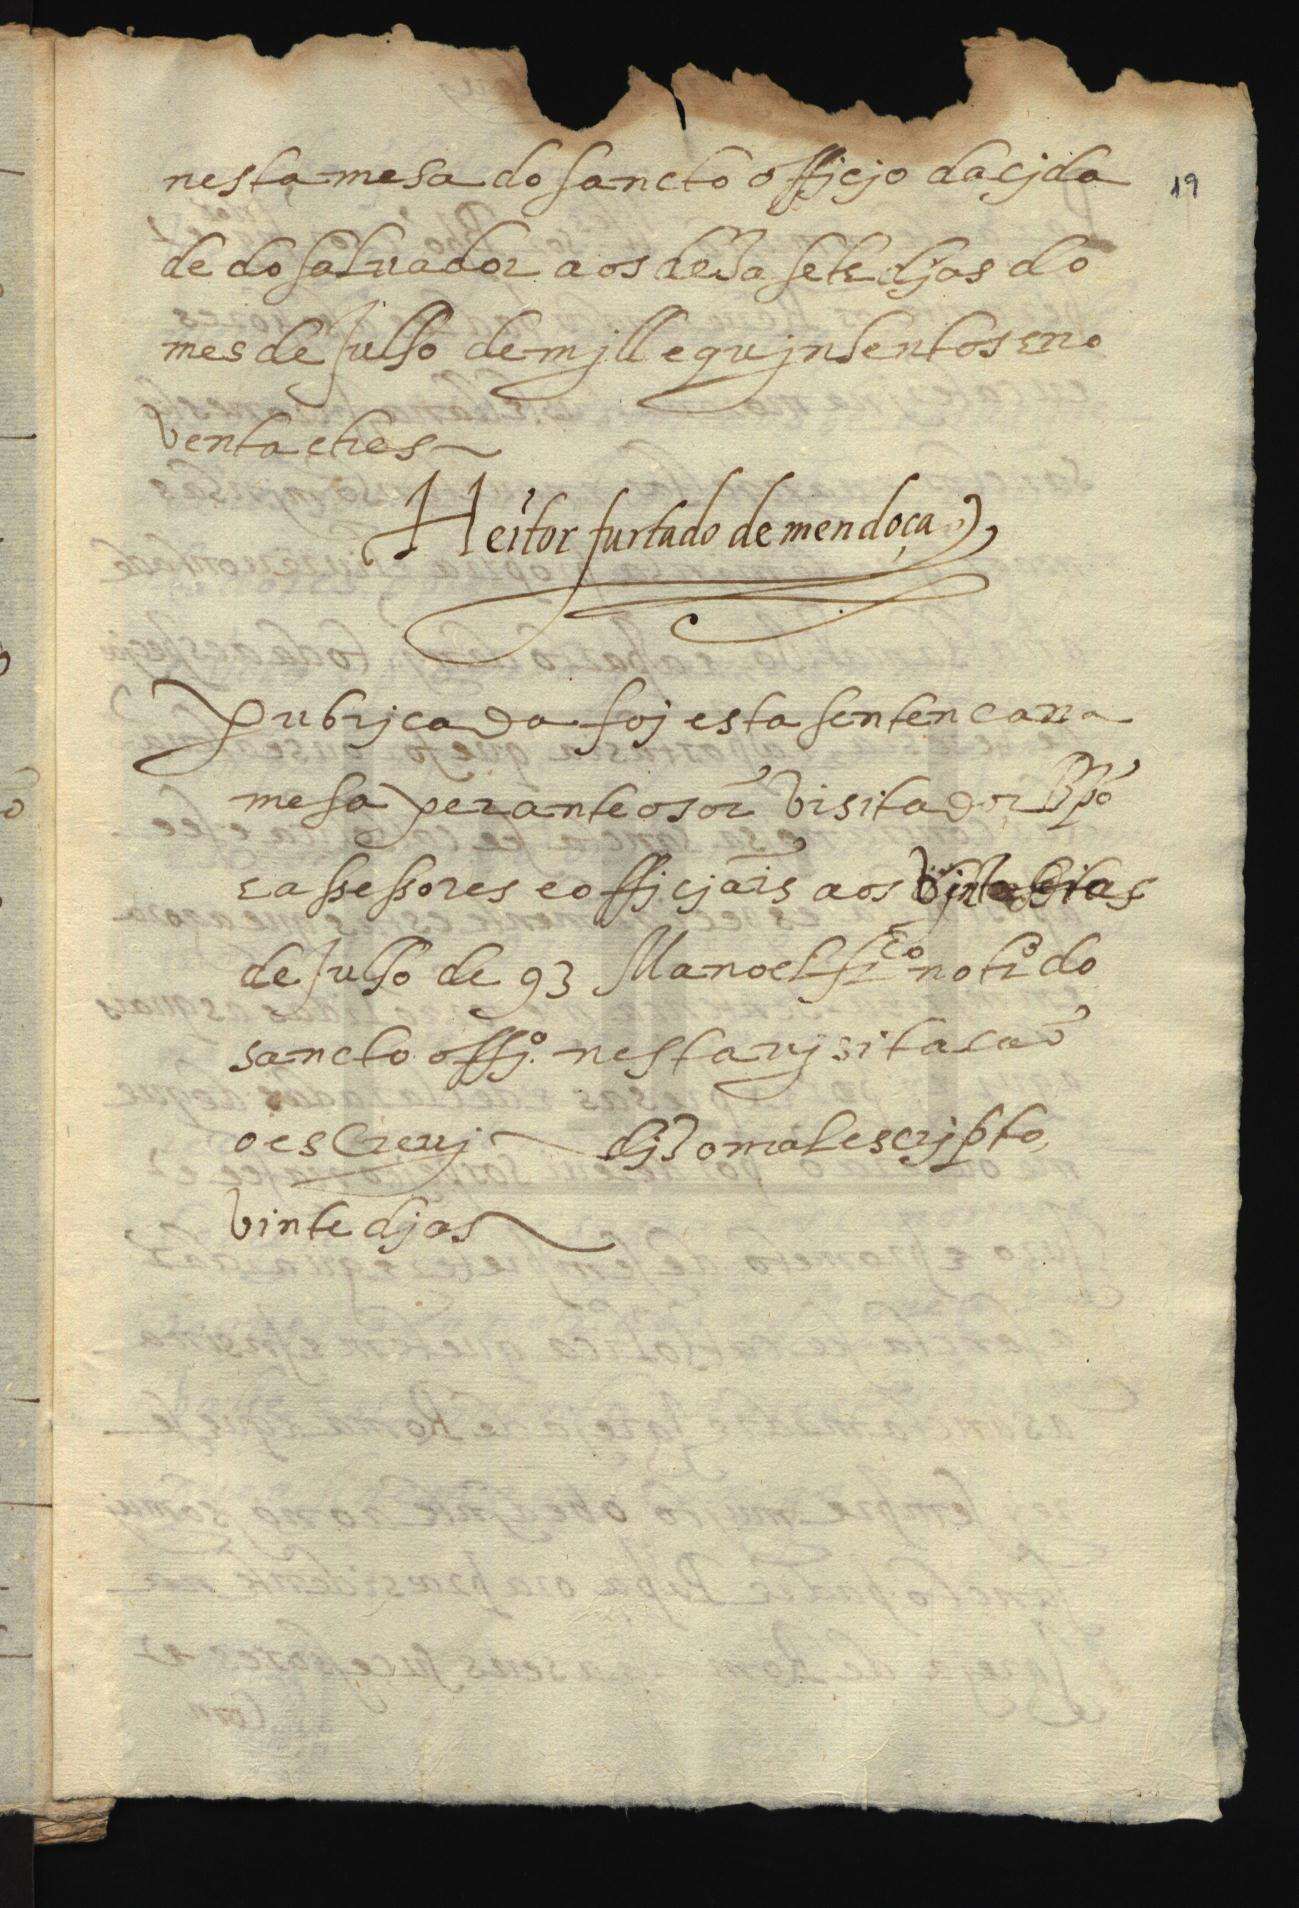 19
nesta mesa do sancto officjo da cjda
de do salvador aos deza sete djas do
mes de Julho de mjll e quynhentos e no
venta e tres
Heitor furtado de mendoça
pubrjcada foj esta sentenca na
mesa perante o sor visitador Bpo
e assessores e officjais aos vinte djas
de Julho de 93 Manoel frco notro do
sancto offjo nesta vysitacaõ
o escrevj djz o mal escrjpto
vinte djas